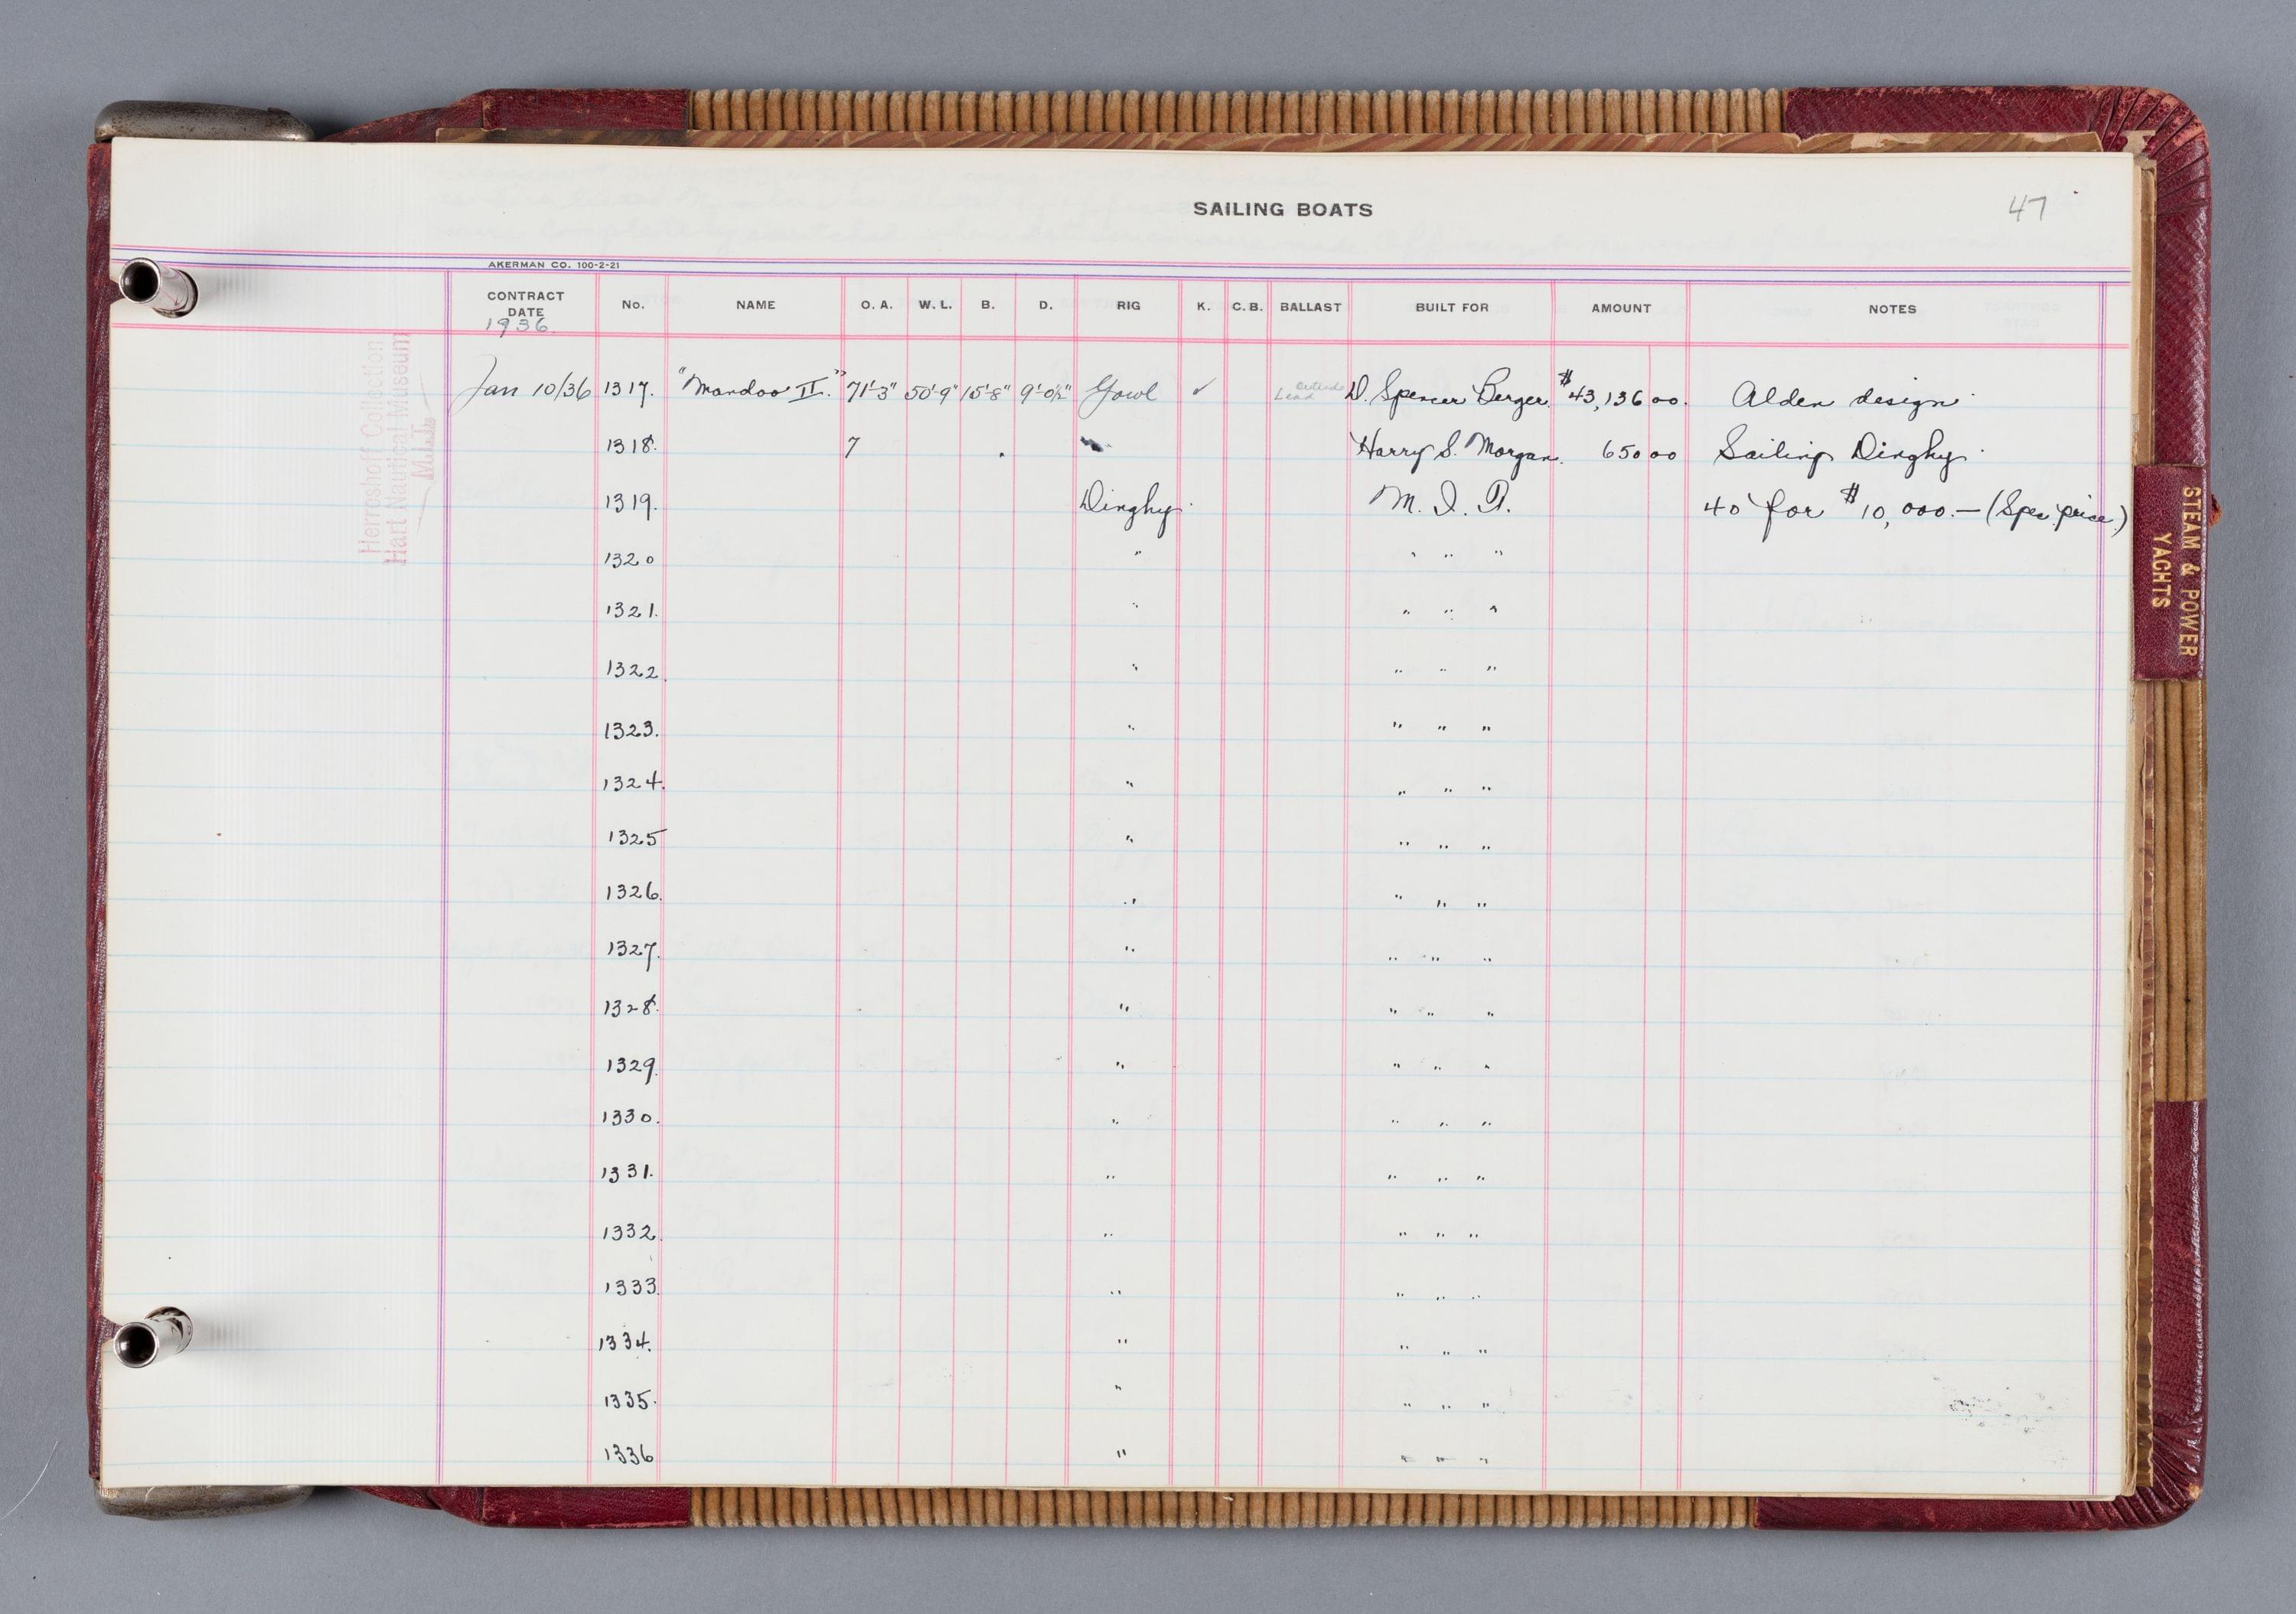 SAILING BOATS 47
AKERMAN CO. 100-2-21
CONTRACT DATE No. NAME O. A. W. L. B. D. RIG K. C. B. BALLAST BUILT FOR AMOUNT NOTES
1936
Jan 10/36 1317. "Mandoo II." 71'-3" 50'-9" 15'-8" 9'-0½" Yawl ✓ Outside Lead D. Spencer Berger. $43,136 00. Alden design
1318. 7 Harry S. Morgan. 650 00 Sailing Dinghy
1319. Dinghy. M. I. T. 40 for $10,000.— (Spec. price.)
1320 " " " "
1321. " " " "
1322. " " " "
1323. " " " "
1324. " " " "
1325 " " " "
1326. " " " "
1327. " " " "
1328. " " " "
1329. " " " "
1330. " " " "
1331. " " " "
1332. " " " "
1333. " " " "
1334. " " " "
1335. " " " "
1336 " " " "
Herreshoff Collection
Hart Nautical Museum
M.I.T.
STEAM & POWER
YACHTS